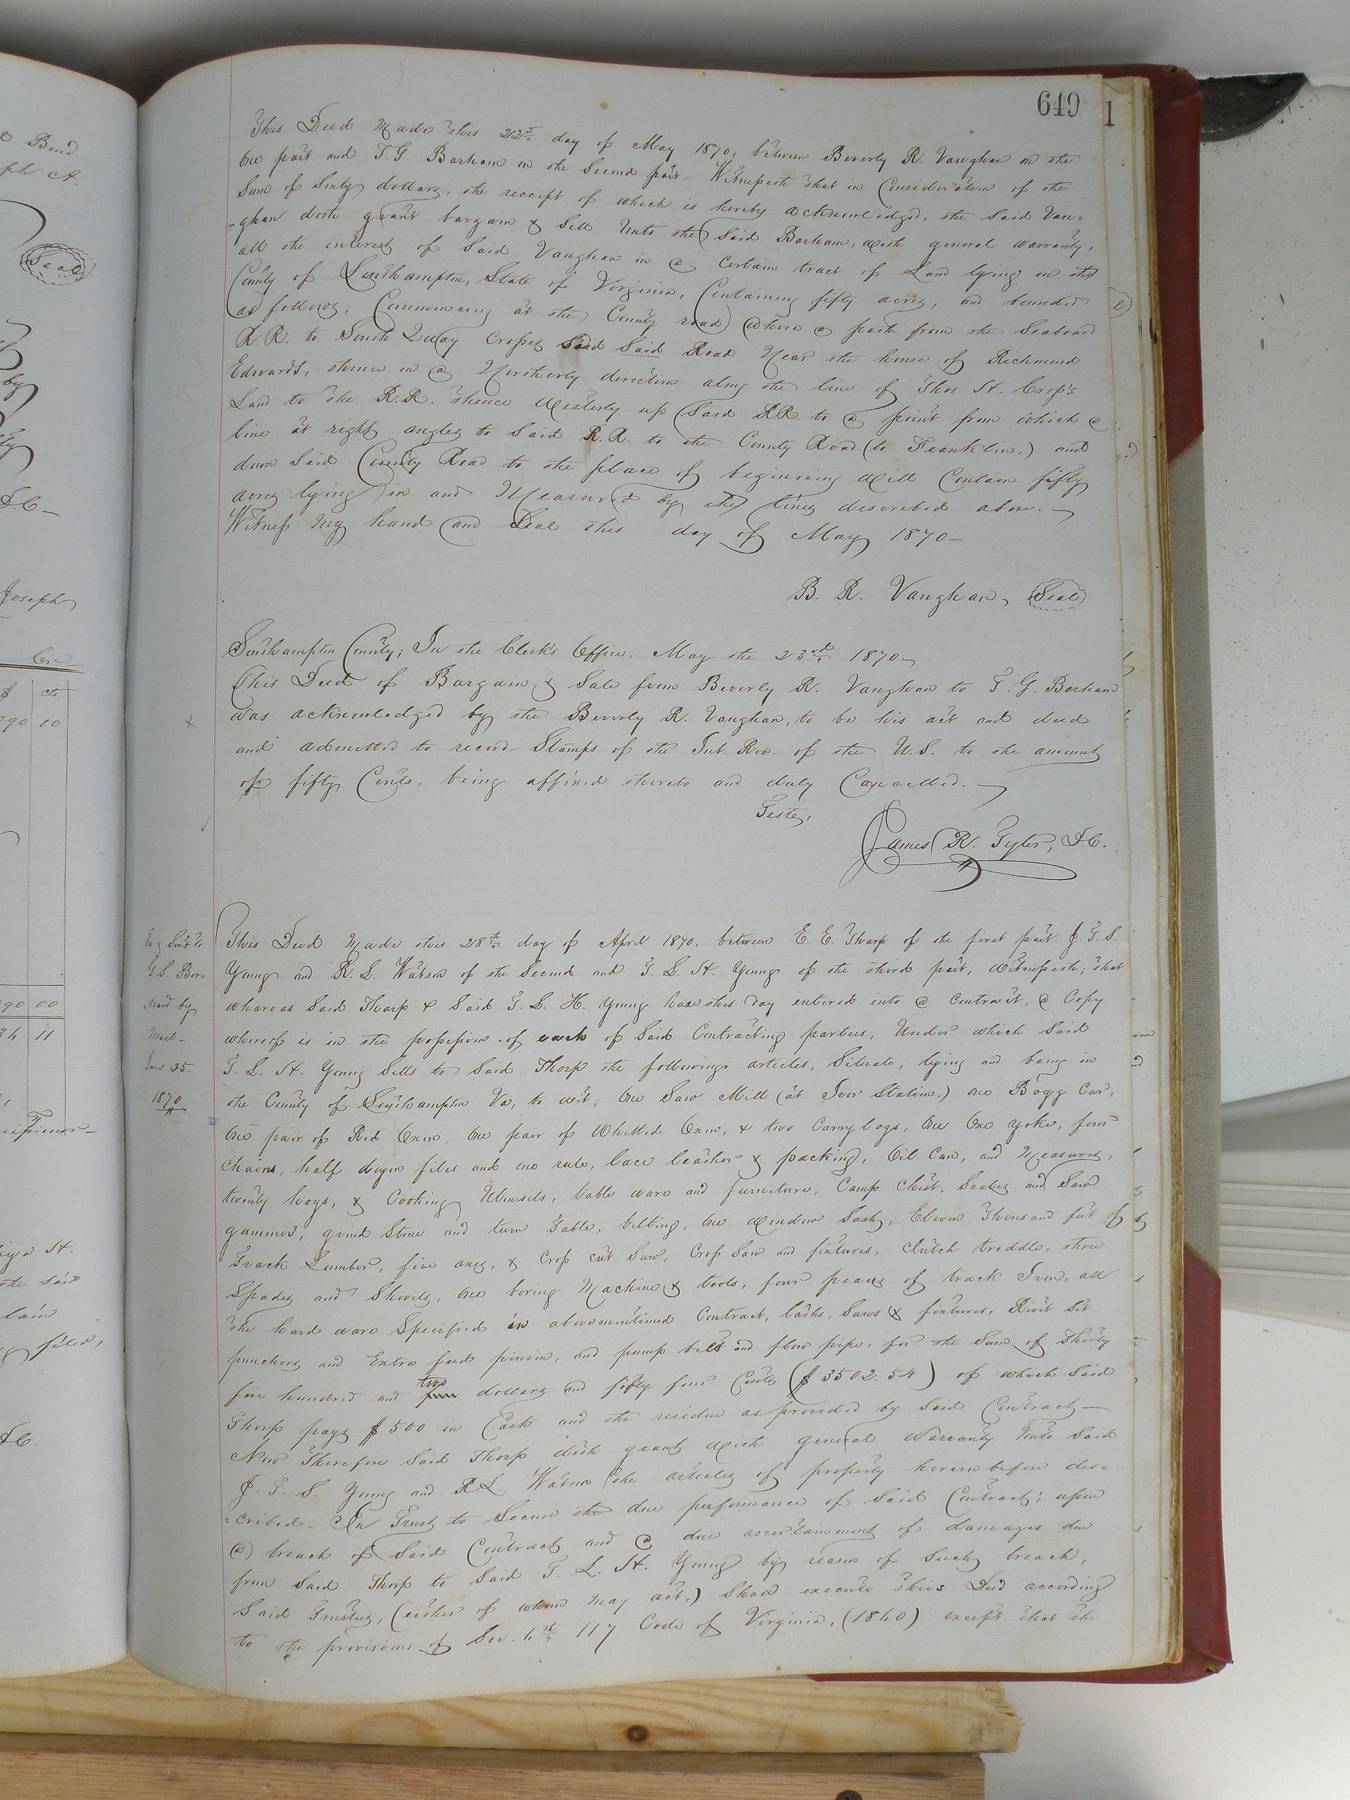 649
1
This Deed Made this 22nd day of May 1870, between Beverly R. Vaughan on the
one part and T. G. Barham on the Second part Witnesseth that in Consideration of the
Sum of Sixty dollars, the receipt of which is hereby acknowledged, the Said Van-
-ghan doth grant bargain & Sell Unto the Said Barham, with general warranty,
all the interest of Said Vaughan in a Certain tract of Land lying in the
County of Southampton, State of Virginia, Containing fifty acres, and bounded
as follows; Commencing at the County road where a path from the Seaboard
R.R. to South Quay Crosses Said Said Road Near the house of Richmond
Edwards, thence in a Northerly direction along the line of Thos H. Crop's
Land to the R.R. thence Westerly up Said RR to a point from which a
line at right angles to Said R.R. to the County Road (to Franklin,) and
down Said County Road to the place of beginning Will Contain fifty
acres lying in and Measured by the lines described above.
Witness My hand and Seal this day of May 1870
B. R. Vaughan, Seal
Southampton County; In the Clerk's Office, May the 23rd 1870
This Deed of Bargain & Sale from Beverly R. Vaughan to T. G. Barham
was acknowledged by the Beverly R. Vaughan, to be his act and deed
and admitted to record Stamps of the Int Rev. of the U.S. to the amount
of fifty Cents, being affixed thereto and duly Cancelled.
Teste,
James R. Tyler, D.C.
This Deed Made this 28th day of April 1870, between E. E. Tharp of the first part J. T. S.
Young and R. L. Watson of the Second and T. L. H. Young of the third part, Witnesseth; that
whereas Said Tharp & Said T. L. H. Young have this day entered into a Contract, a Copy
whereof is in the possession of each of Said Contracting parties, Under which Said
T. L. H. Young Sells to Said Tharp the following articles, Situate, lying and being in
the County of Southampton Va, to wit; One Saw Mill (at Ivor Station,) one Bogg Car,
One pair of Red Oxen, One pair of Whitted Oxen, & two Carrylogs, One Ox yoke, four
Chains, half dozen files and one rule, lace leather & packing, Oil Can, and Measures,
twenty hogs, & Cooking Utensils, table ware and furniture, Camp Chest, Scales and Saw
gummer, grind Stone and turn Table, belting, One Window Sash, Eleven Thousand feet of
Track Lumber, five axes, & Crop cut Saw, Crop Saw and fixtures, Clutch treddle, three
Spades and Shovels, One boring Machine & tools, four peaces of track Iron, all
the hard ware Specified in abovementioned Contract, laths, Saws & fixtures, Rivit Set
punchers and Extra feed pinion, and pump belt and flow pipe, for the Sum of Thirty
five hundred and two dollars and fifty four Cents ($3502.54) of which Said
Tharp pays $500 in Cash and the residue as provided by Said Contract—
Now Therefore Said Tharp doth grant with general Warranty Unto Said
J. T. S. Young and R L. Watson the articles of property herein before des=
=cribed In Trust to Secure the due performance of Said Contract; upon
a breach of Said Contract and a due ascertainment of damages due
from Said Tharp to Said T. L. H. Young by reason of Such breach,
Said Trustees, (either of whom may act,) Shall execute this Deed according
to the provisions of Sec. 6th 117 Code of Virginia, (1860) except that the
Sent to
by
Jan 25
1870
Seal
D.C.
Joseph
cts
00
90 00
34 11